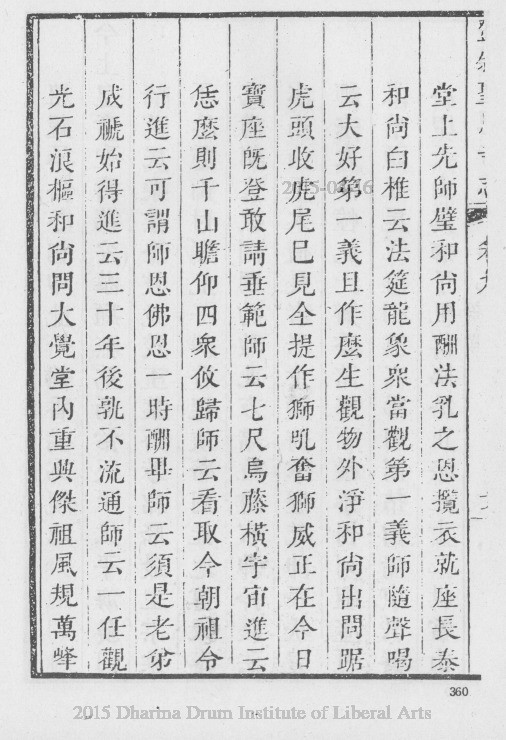 堂上先師璧和尚用酬法乳之恩攬衣就座長泰
和尚白椎云法筵龍象衆當觀第一義師隨聲喝
云大好第一義且作麼生觀物外淨和尚出問踞
虎頭收虎尾已見全提作獅吼奮獅威正在今日
寶座既登敢請垂範師云七尺烏藤橫宇宙進云
恁麼則千山瞻仰四衆攸歸師云看取今朝祖令
行進云可謂師恩佛恩一時酬畢師云須是老爺
成褫始得進云三十年後孰不流通師云一任觀
光石浪樞和尚問大覺堂內重興傑祖風規萬峰
360
2015 Dharma Drum Institute of Liberal Arts